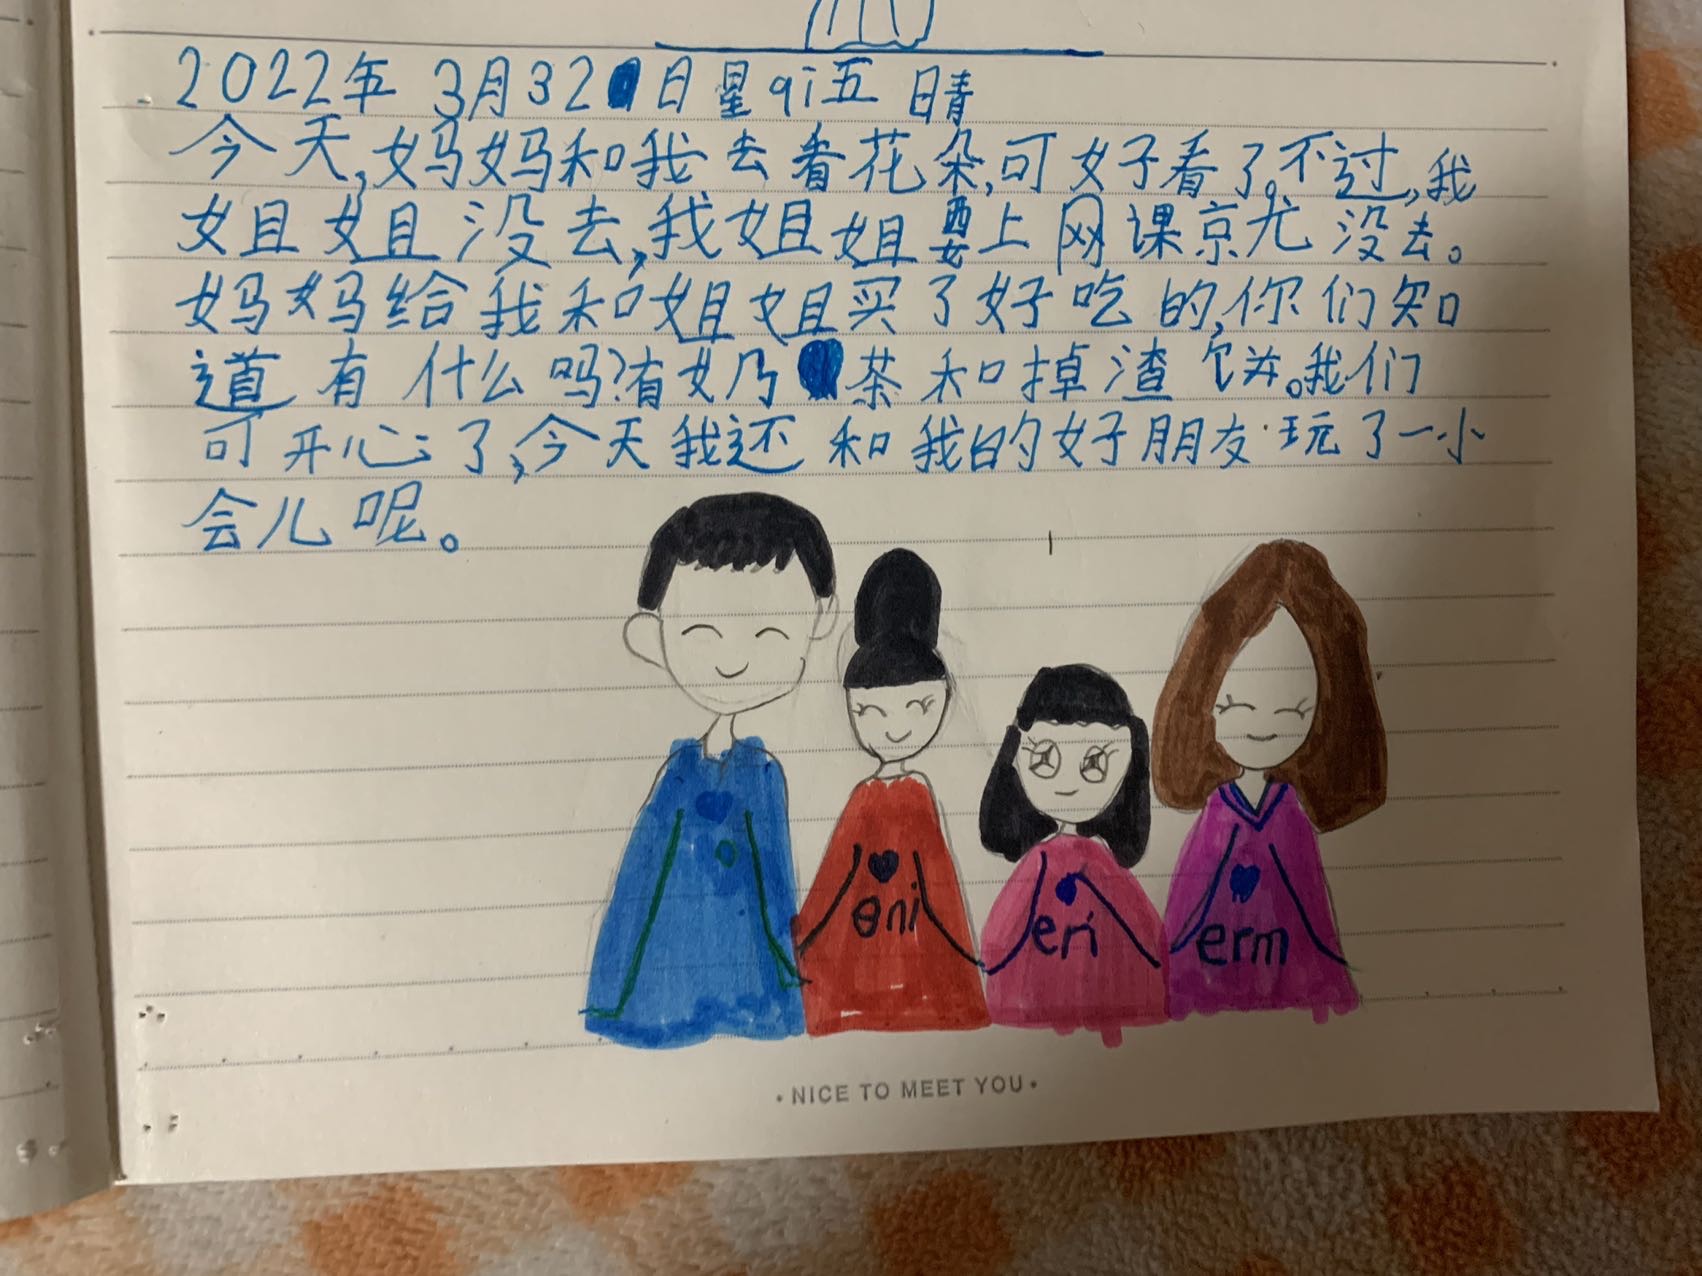 2022年 3月32日星qi五 晴
今天,妈妈和我去看花朵,可好看了。不过,我
姐姐没去,我姐姐要上网课京尤没去。
妈妈给我和姐姐买了好吃的,你们知
道有什么吗?有奶茶和掉渣饼。我们
可开心了,今天我还和我的好朋友玩了一小
会儿呢。
eni
eri
erm
•NICE TO MEET YOU•